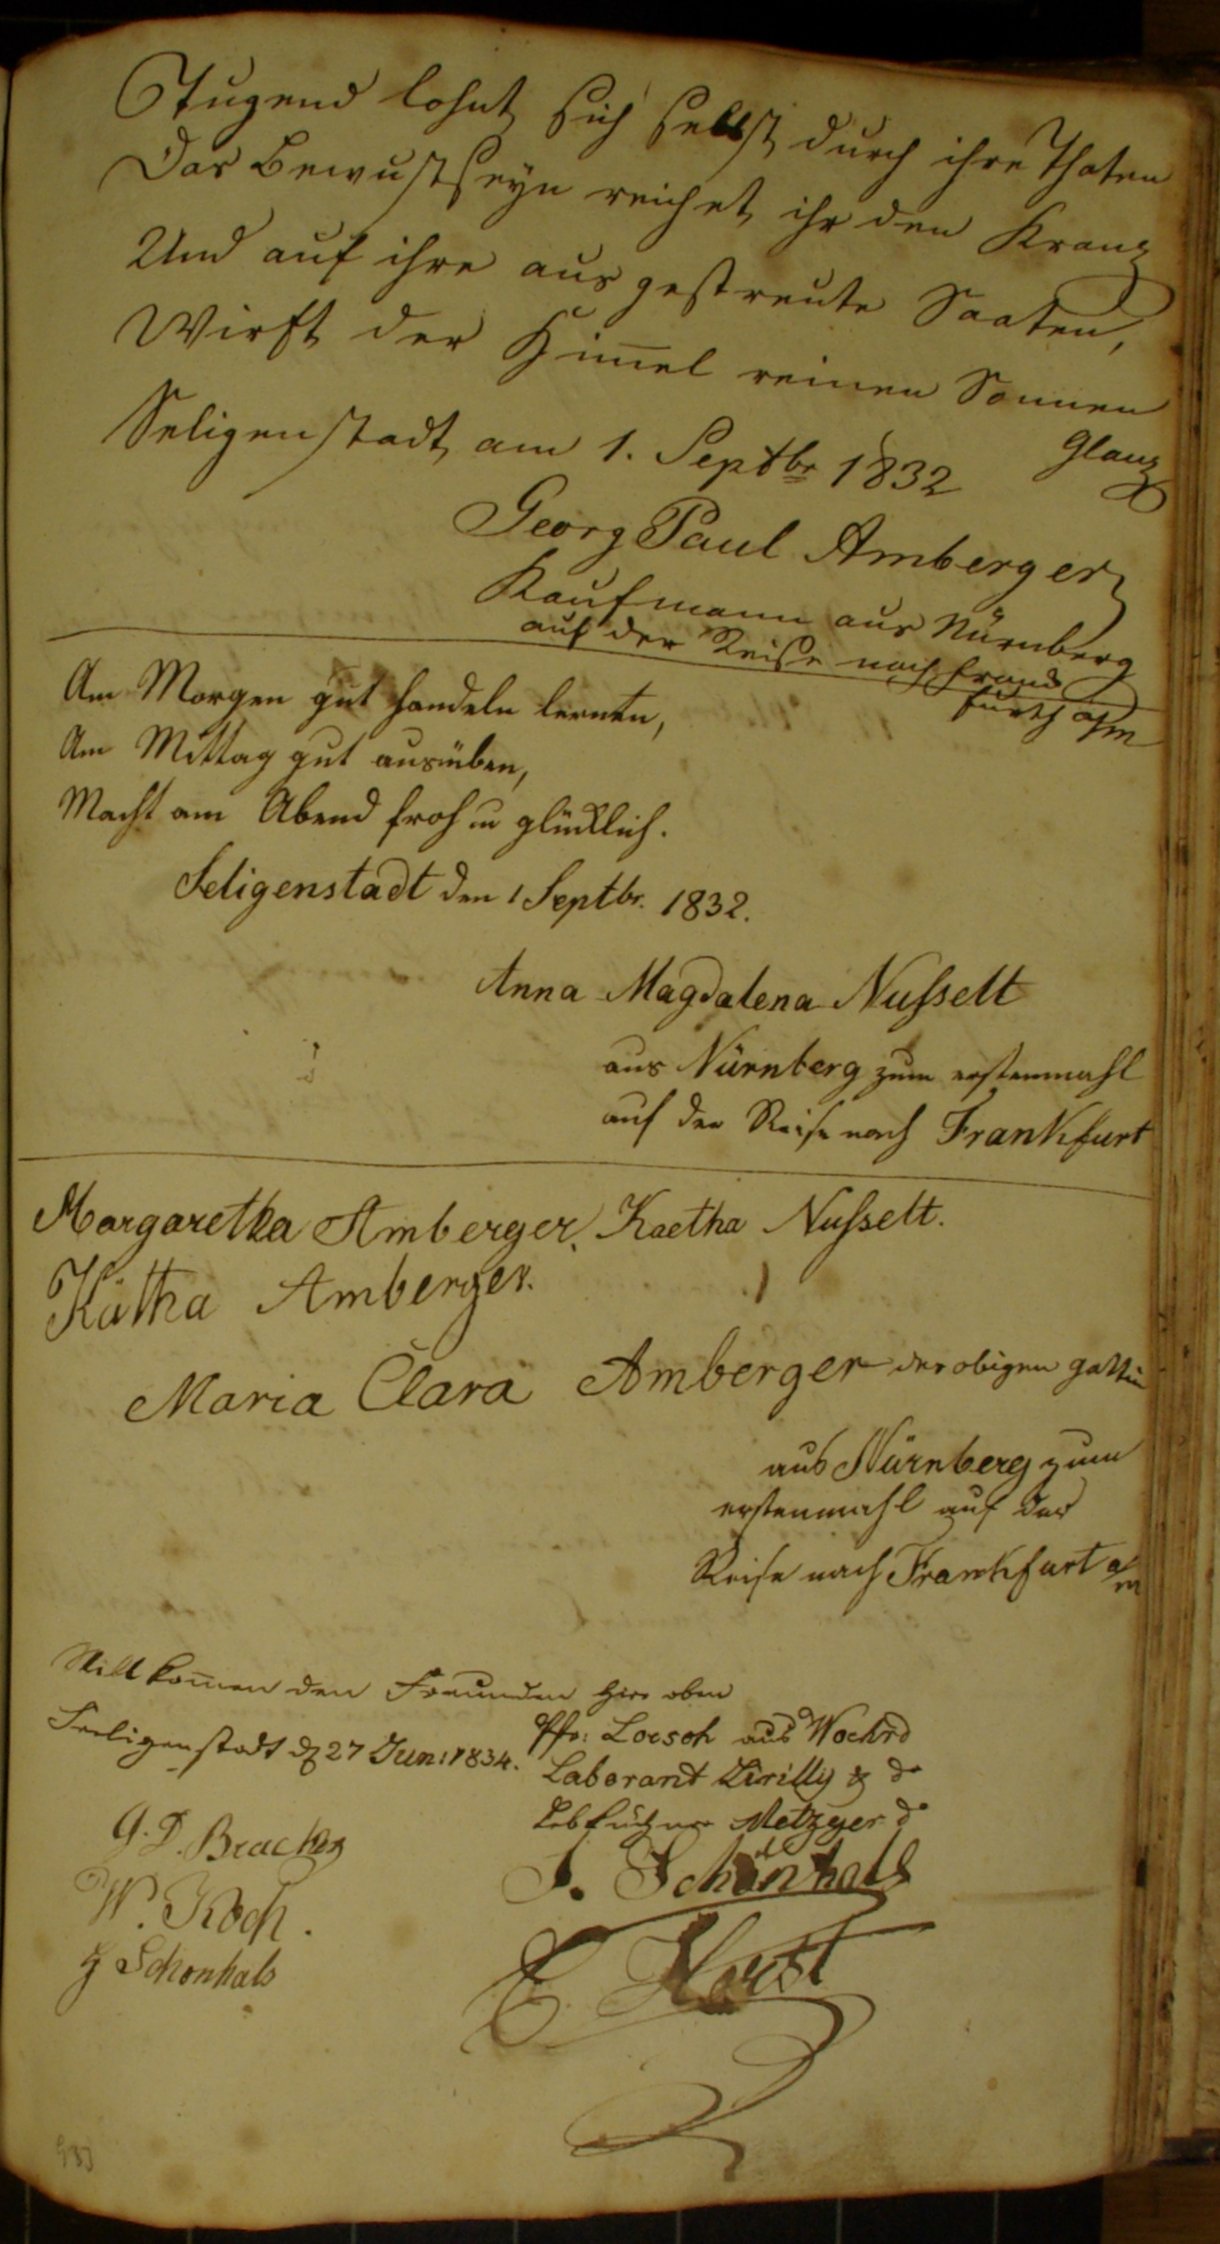 Tugend lohnt sich selbst durch ihre Thaten
Das Bewustseyn reichet ihr den Kranz
Und auf ihre ausgestreute Saaten,
Wirft der Him̄el reinen Sonnen
Glanz
Seligenstadt am 1. Septbr 1832
Georg Paul Amberger
Kaufmann aus Nürnberg
auf der Reise nach Frank
furth a/m
Am Morgen gut handeln lernen,
Am Mittag gut ausüben,
Macht am Abend froh u glücklich.
Seligenstadt den 1 Septbr. 1832.
Anna Magdalena Nusselt
aus Nürnberg zum erstenmahl
auf der Reise nach Frankfurt
Margaretha Amberger, Kaetha Nusselt.
Kätha Amberger.
Maria Clara Amberger der obigen Gattin
aus Nürnberg zum
erstenmahl auf der
Reise nach Frankfurt a/m
Willkom̄en den Freunden hier oben
Seeligenstadt d 27 Jun: 1834.
Pfr: Loesch aus
Laborant Zirilly
Lebküchner Metzger do
G. P. Bracker
J. Schönhals
W. Koch.
Schonhals
C Horst
983